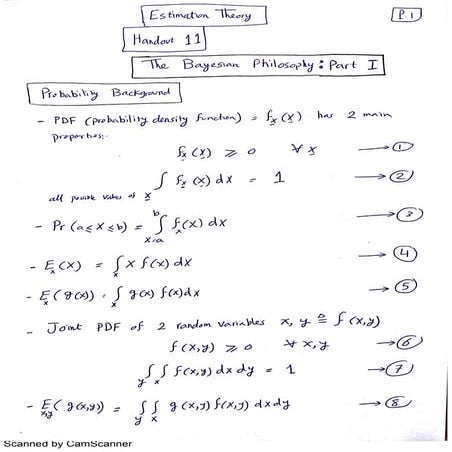 Estimation Theory
P.1
Handout 11
The Bayesian Philosophy: Part I
Probability Background
- PDF (probability density function) = fₓ(x) has 2 main
properties:-
fₓ(x) ≥ 0 ∀ x → ①
∫ fₓ(x) dx = 1 → ②
all possible values of x
- Pr (a ≤ X ≤ b) = ∫_{x=a}^{b} fₓ(x) dx → ③
- Eₓ(X) = ∫ₓ x f(x) dx → ④
- Eₓ(g(x)) = ∫ₓ g(x) f(x) dx → ⑤
- Joint PDF of 2 random variables x, y ≙ f(x,y)
f(x,y) ≥ 0 ∀ x,y → ⑥
∫_y ∫_x f(x,y) dx dy = 1 → ⑦
- E_{x,y} (g(x,y)) = ∫_y ∫_x g(x,y) f(x,y) dx dy → ⑧
Scanned by CamScanner